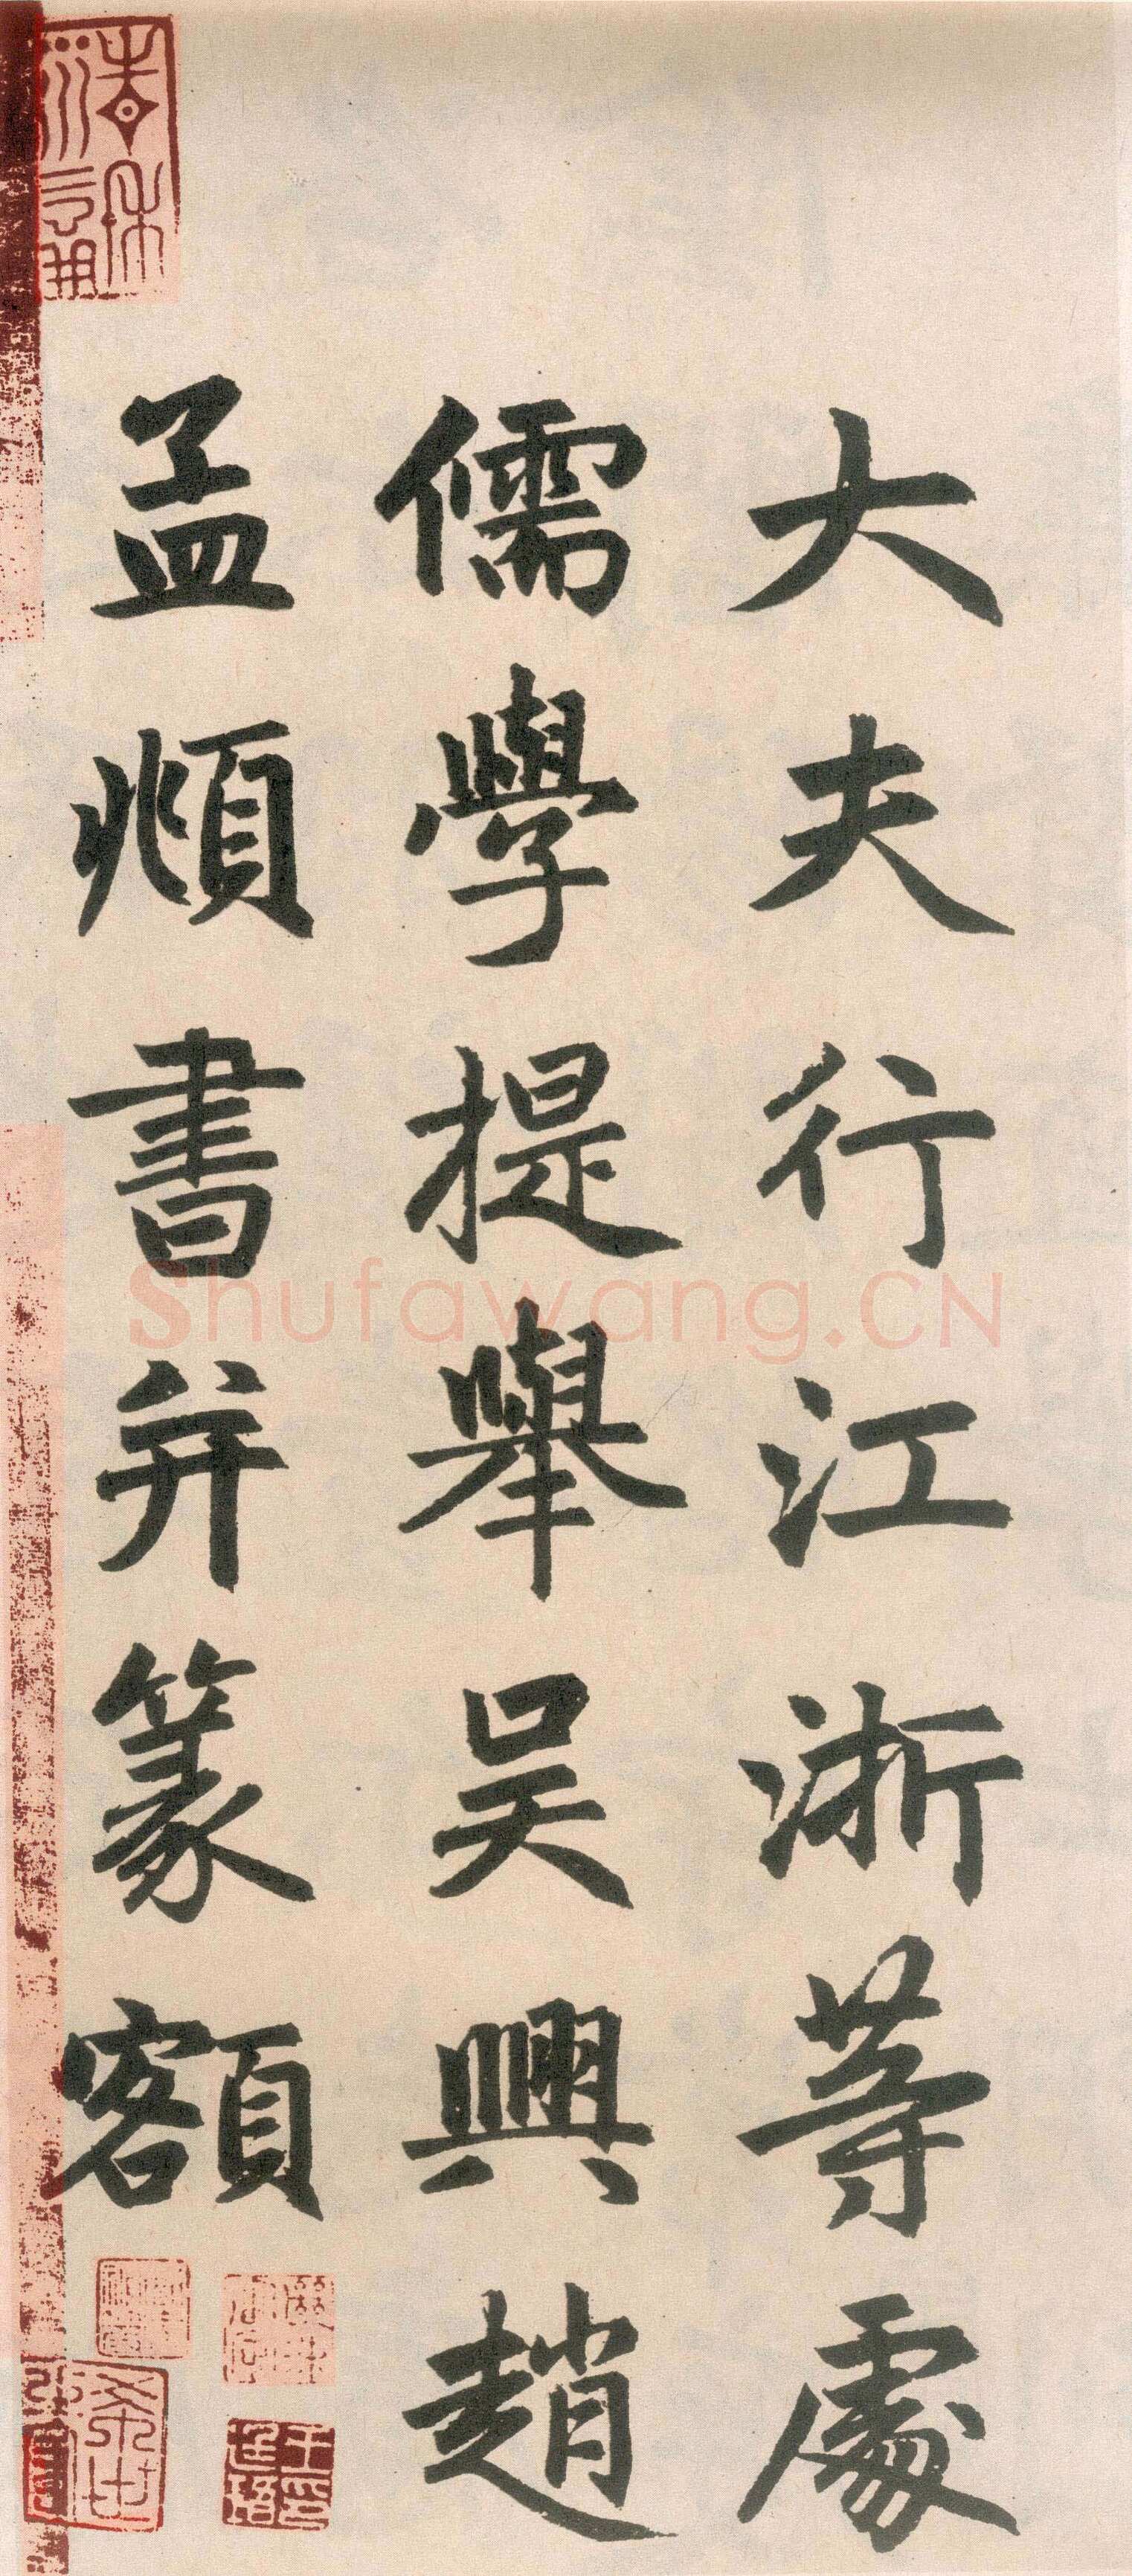 大夫行江浙等處
儒學提舉吴興趙
孟頫書并篆額
Shufawang.CN